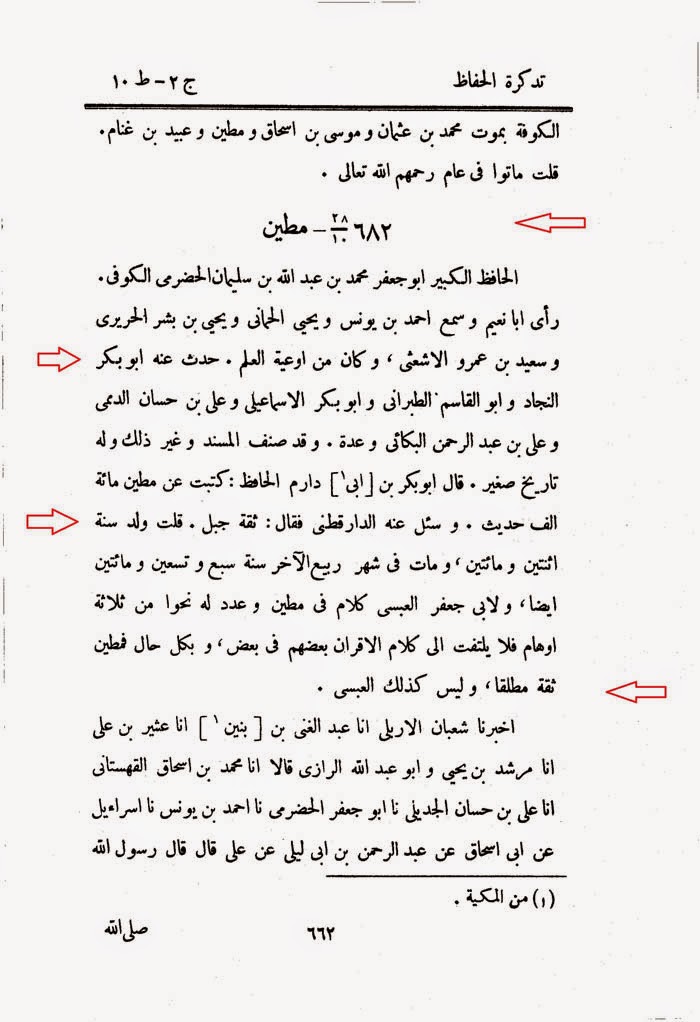 تذكرة الحفاظ ج ٢ - ط ١٠
الكوفة بموت محمد بن عثمان و موسى بن اسحاق و مطين و عبيد بن غنام .
قلت ماتوا فى عام رحمهم الله تعالى .
٦٨٢ ٢٨/١٠ - مطين
الحافظ الكبير ابو جعفر محمد بن عبد الله بن سليمان الحضرمى الكوفى .
رأى ابا نعيم و سمع احمد بن يونس و يحيى الحمانى و يحيى بن بشر الحريرى
و سعيد بن عمرو الاشعثى ، و كان من اوعية العلم . حدث عنه ابو بكر
النجاد و ابو القاسم الطبرانى و ابو بكر الاسماعيلى و على بن حسان الدممى
و على بن عبد الرحمن البكائى و عدة . و قد صنف المسند و غير ذلك و له
تاريخ صغير . قال ابو بكر بن [ ابى ١ ] دارم الحافظ : كتبت عن مطين مائة
الف حديث . و سئل عنه الدارقطنى فقال : ثقة جبل . قلت ولد سنة
اثنتين و مائتين ، و مات فى شهر ربيع الآخر سنة سبع و تسعين و مائتين
ايضا ، و لابى جعفر العبسى كلام فى مطين و عدد له نحوا من ثلاثة
اوهام فلا يلتفت الى كلام الاقران بعضهم فى بعض ، و بكل حال فمطين
ثقة مطلقا ، و ليس كذلك العبسى .
اخبرنا شعبان الاربلى انا عبد الغنى بن [ بنين ١ ] انا عشير بن على
انا مرشد بن يحيى و ابو عبد الله الرازى قالا انا محمد بن اسحاق القهستانى
انا على بن حسان الجديلى نا ابو جعفر الحضرمى نا احمد بن يونس نا اسراءيل
عن ابى اسحاق عن عبد الرحمن بن ابى ليلى عن على قال قال رسول الله
(١) من المكية .
٦٦٢ صلى الله